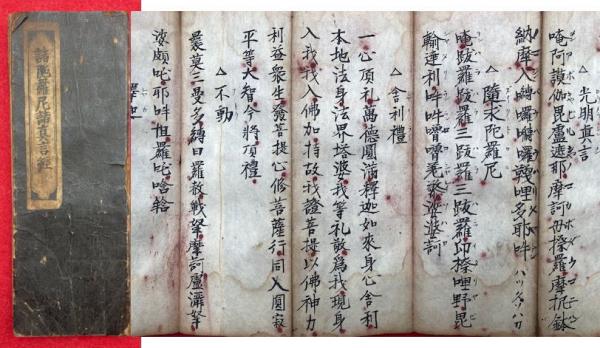 諸陀羅尼諸真言経
△光明真言
唵阿謨伽毘盧遮那摩訶母捺羅摩抳鉢
納摩入嚩囉韈哩多耶吽
△隨求陀羅尼
唵跋羅跋羅三跋羅三跋羅印捺哩野毘
輸達利吽吽嚕嚕娑婆訶
△舎利禮
一心頂礼萬德圓満釋迦如来身心舎利
本地法身法界塔婆我等礼敬為我現身
入我我入佛加持故我證菩提以佛神力
利益衆生發菩提心修菩薩行同入圓寂
平等大智今將頂禮
△不動
曩莫三曼多縛日羅赧戰拏摩訶盧灑拏
娑頗吒耶吽怛羅吒唅